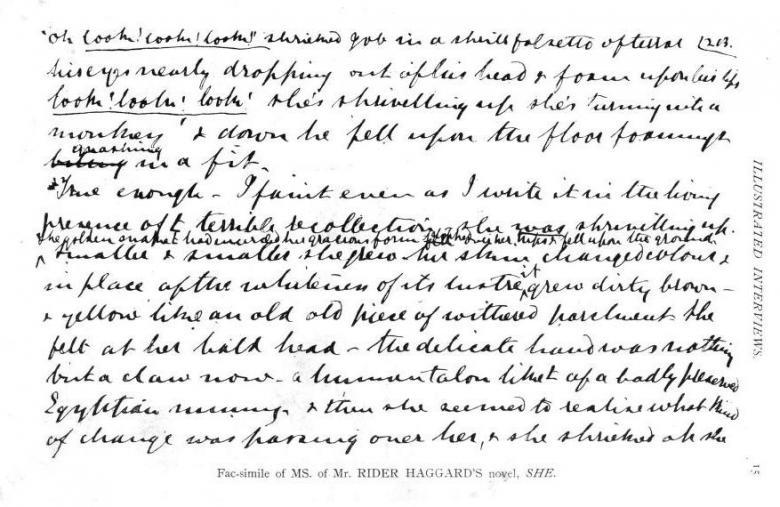 "Oh look! look! look!" shrieked Job in a shrill falsetto of terror 213.
his eyes nearly dropping out of his head & foam upon his lips
look! look! look! she's shrivelling up she's turning into a
monkey' & down he fell upon the floor foaming &
gnashing
biting in a fit.
True enough - I faint even as I write it in the living
presence of that terrible recollection - she was shrivelling up.
the golden snake that had encircled her gracious form slipped over her hips & fell upon the ground
smaller & smaller she grew her skin changed colour &
in place of the whiteness of its lustre it grew dirty brown -
& yellow like an old old piece of withered parchment she
felt at her bald head - the delicate hand was nothing
but a claw now - a human talon like that of a badly preserved
Egyptian mummy & then she seemed to realise what kind
of change was passing over her, & she shrieked ah she
Fac-simile of MS. of Mr. RIDER HAGGARD'S novel, SHE.
ILLUSTRATED INTERVIEWS.
15